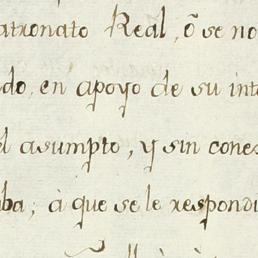 atronato Real, ò se no
do, en apoyo de su inte
el asumpto, y sin cones
ba; à que se le respondi